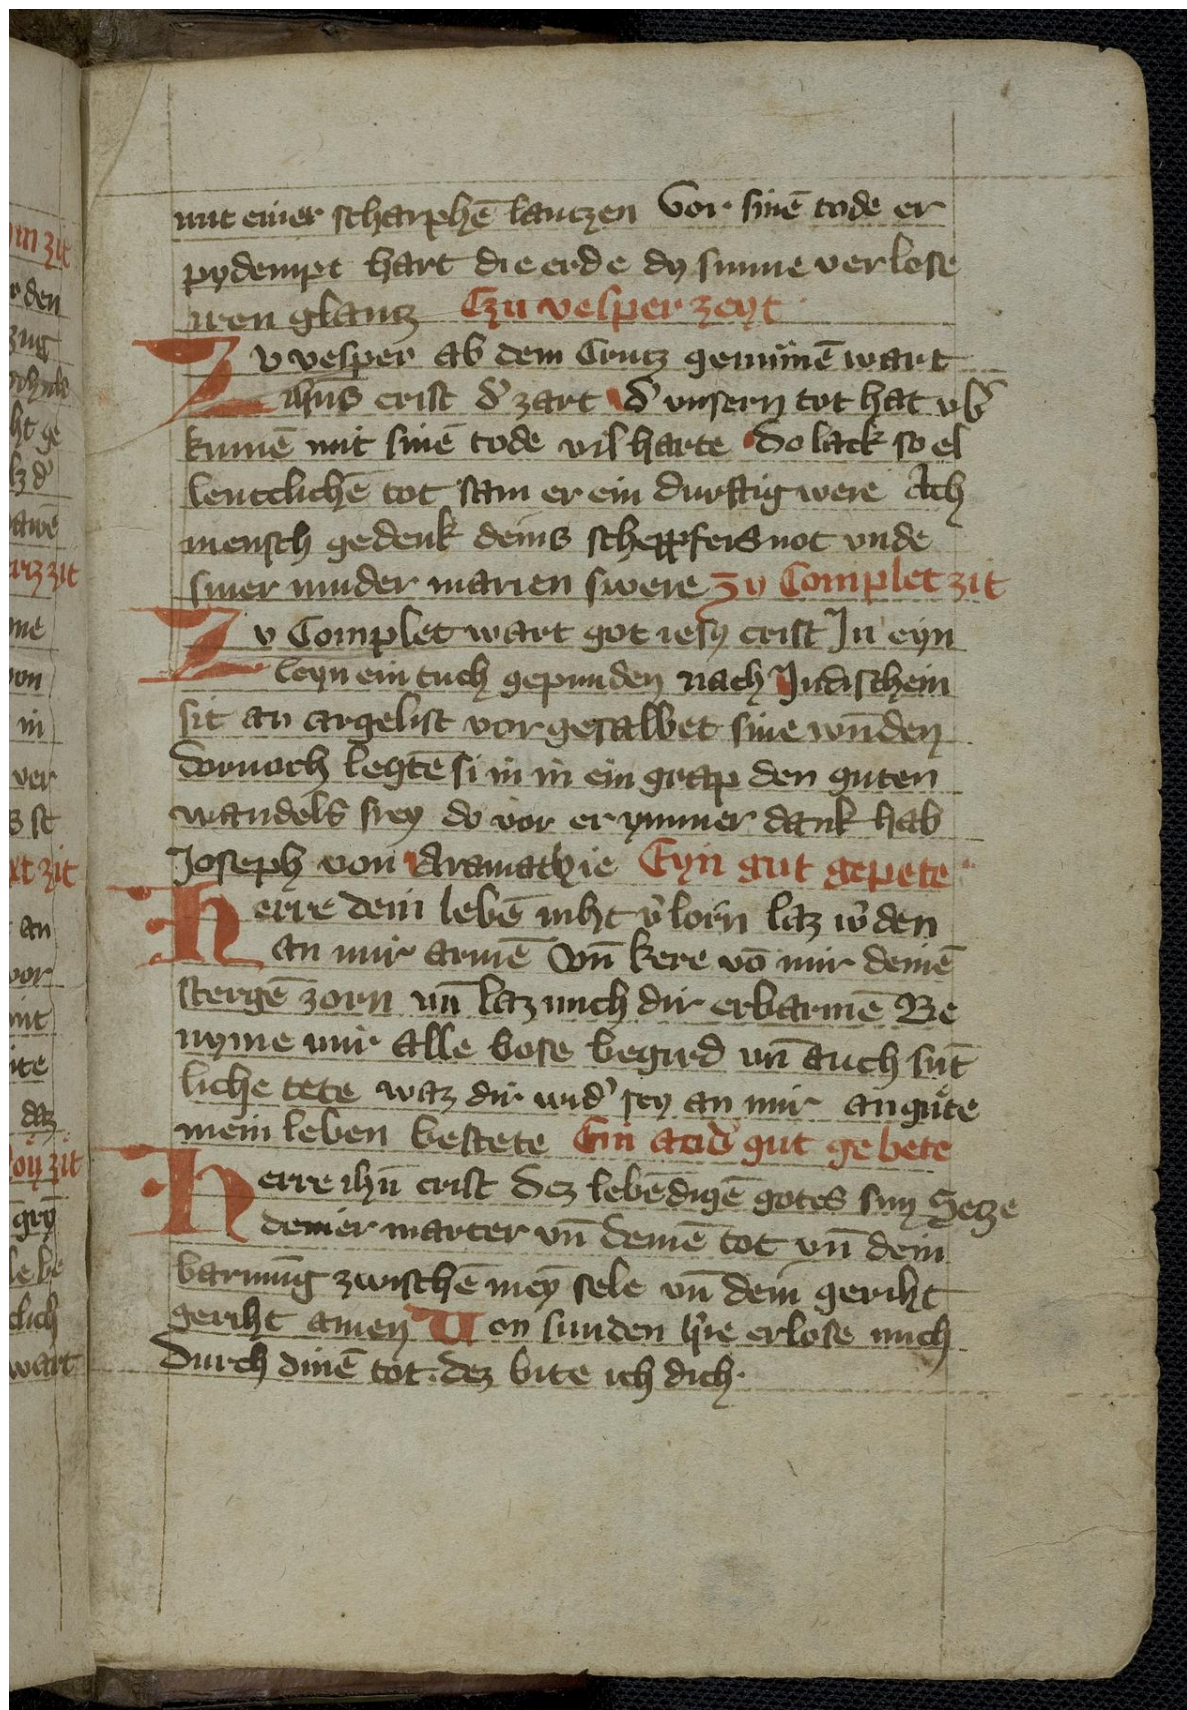 mit einer scharphē lantzen Vor sinē tode er
pydempt hart die erde dy sunne verlose
iren glantz Czu vesper zeyt
Zv vesper ab dem Crutz genumē wart
ihūs crist d' zart d' vnsern tot hat vb'
kumē mit sinē tode vil harte Do lack so el
lentclichē tot sam er ein durftig were Ach
mensch gedenk deins schepfers not vnde
siner muder marien swere Zv Complet zit
Zv Complet wart got iesu crist In eyn
leyn ein tuch gepunden nach Iudischem
sit an argelist vor gesalbet sine wūden
dornoch legtē si in in ein grap den guten
wandels frey do vor er ymmer dank hab
Joseph von Aramathie Eyn gut gepete
Herre dein lebē niht v'lorn laz w'den
an mir armē Vn̄ kere vō mir deinē
stergē zorn vn̄ laz mich dir erbarmē Be
nyme mir alle bose begird vn̄ auch sūt
liche tete waz dir wid' sey an mir an gute
mein leben bestete Ein and' gut gebete
Herre ihū crist dez lebēdigē gotes sun Setze
deiner marter vn̄ deinē tot vn̄ dein
barmūg zwischē mey sele vn̄ dein geriht
geriht amen Von sunden h're erlose mich
Durch dinē tot. dez bite ich dich.